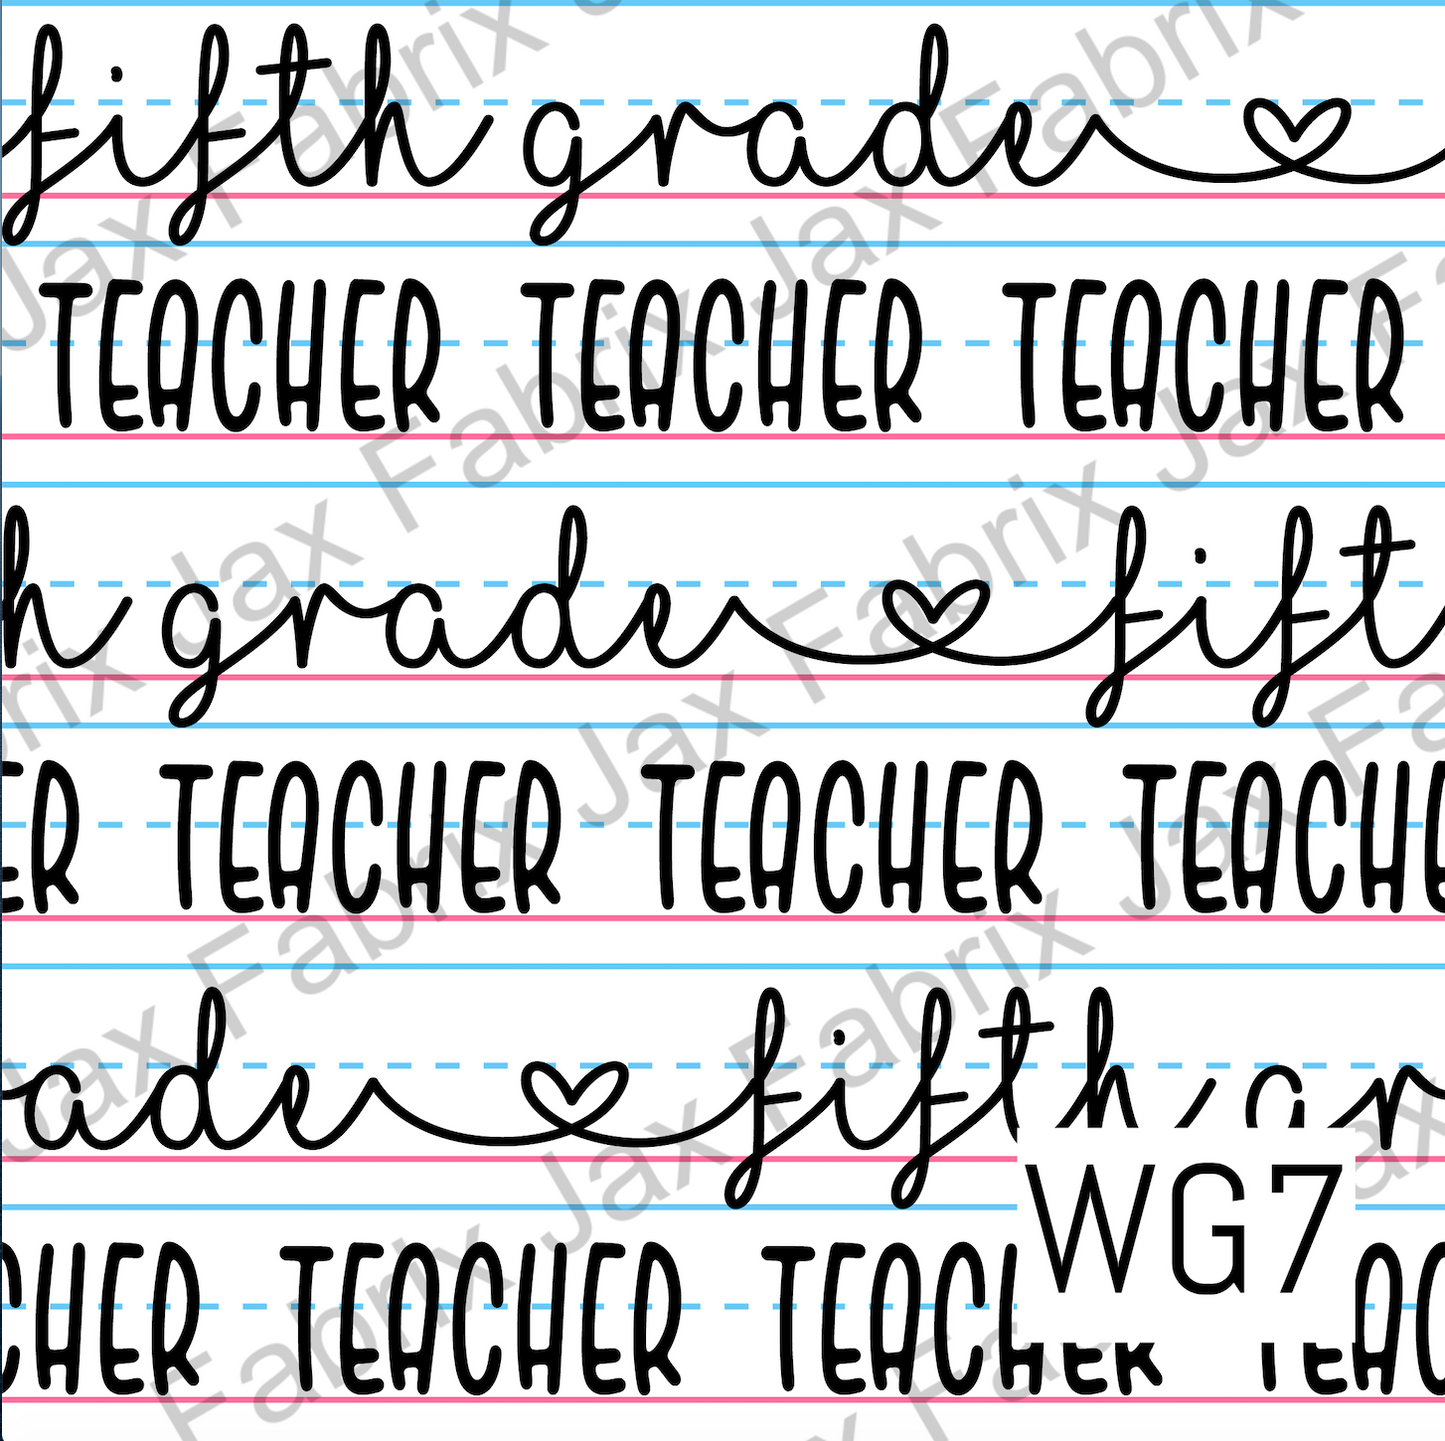 fifth grade
TEACHER TEACHER TEACHER
h grade fift
ER TEACHER TEACHER TEACHE
ade fifth gr
CHER TEACHER TEACHER TEAC
WG7
Jax Fabrix Jax Fabrix Jax Fabrix